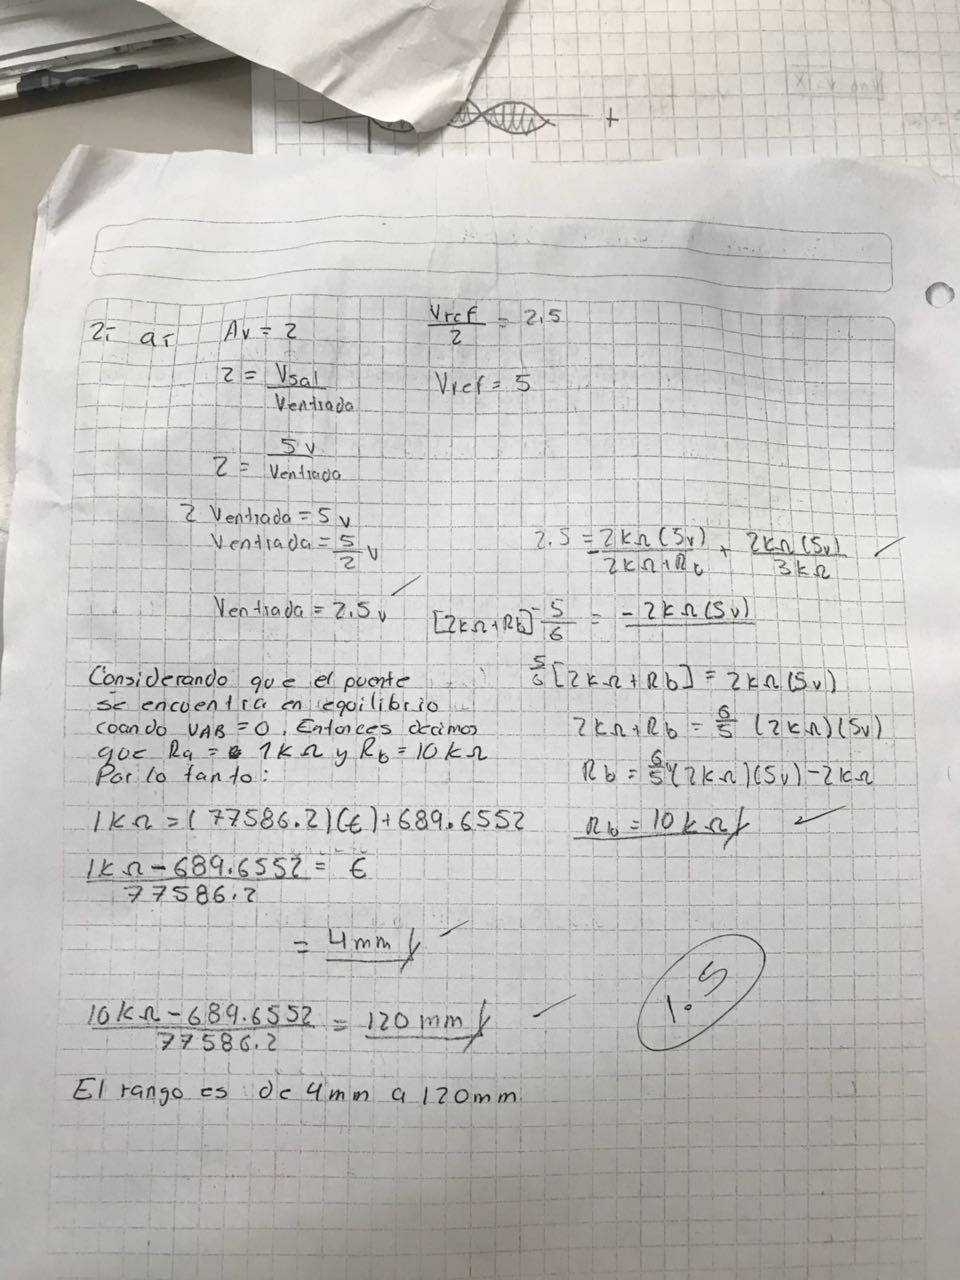 2.- a.-
Av = 2
2 = Vsal / Ventrada
2 = 5v / Ventrada
2 Ventrada = 5v
Ventrada = 5/2 v
Ventrada = 2.5v
Vref / 2 = 2.5
Vref = 5
2.5 = - 2kΩ(5v) / 2kΩ+Rb + 2kΩ(5v) / 3kΩ
[2kΩ+Rb] - 5/6 = -2kΩ(5v)
5/6 [2kΩ+Rb] = 2kΩ(5v)
2kΩ+Rb = 6/5 (2kΩ)(5v)
Rb = 6/5 (2kΩ)(5v) - 2kΩ
Rb = 10kΩ
Considerando que el puente
se encuentra en equilibrio
cuando VAB = 0. Entonces decimos
que Ra = 1kΩ y Rb = 10kΩ
Por lo tanto:
1kΩ = (77586.2)(ε)+689.6552
1kΩ - 689.6552 / 77586.2 = ε
= 4mm
10kΩ - 689.6552 / 77586.2 = 120mm
El rango es de 4mm a 120mm
1.5
+